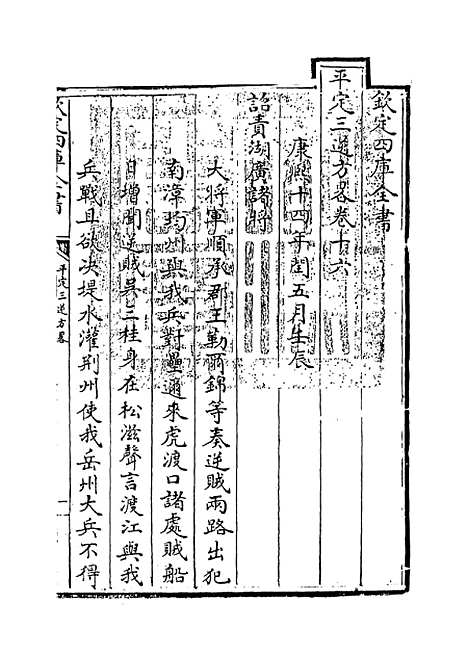 欽定四庫全書
平定三逆方畧卷十六
康熙十四年閏五月壬辰
詔責湖廣諸將
大將軍順承郡王勒爾錦等奏逆賊兩路出犯
南漳均州與我兵對壘邇來虎渡口諸處賊船
日增聞逆賊吳三桂身在松滋聲言渡江與我
兵戰且欲决堤水灌荆州使我岳州大兵不得
欽定四庫全書
平定三逆方畧
一